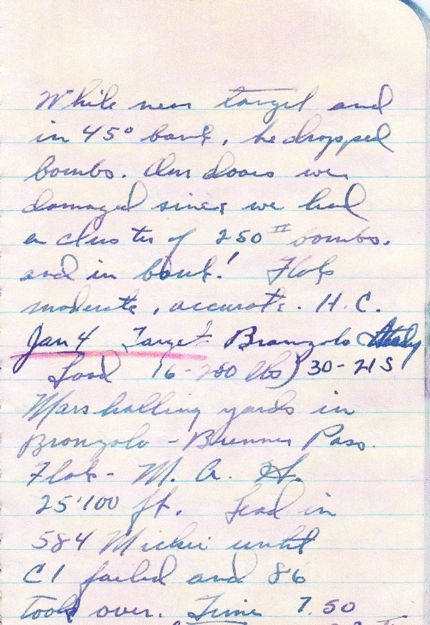 While near target and
in 45° bank, he dropped
bombs. Our doors were
damaged since we had
a cluster of 250 II bombs.
and in bank! Flak
moderate, accurate. H.C.
Jan 4 Target Bronzolo Italy
Load 16-250 lbs) 30-21S
Marshalling yards in
Bronzolo - Brenner Pass.
Flak - M. A. H.
25'100 ft. Lead in
584 Mickie until
C1 failed and 86
took over. Time 7.50